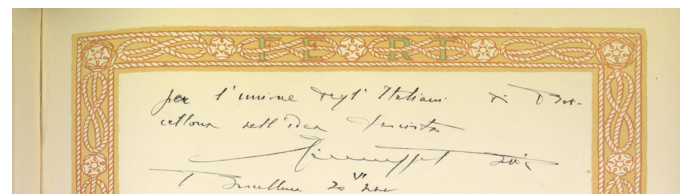 FERT
per l'unione degl'Italiani di Bar-
cellona nell'idea fascista
Barcellona 20 VI